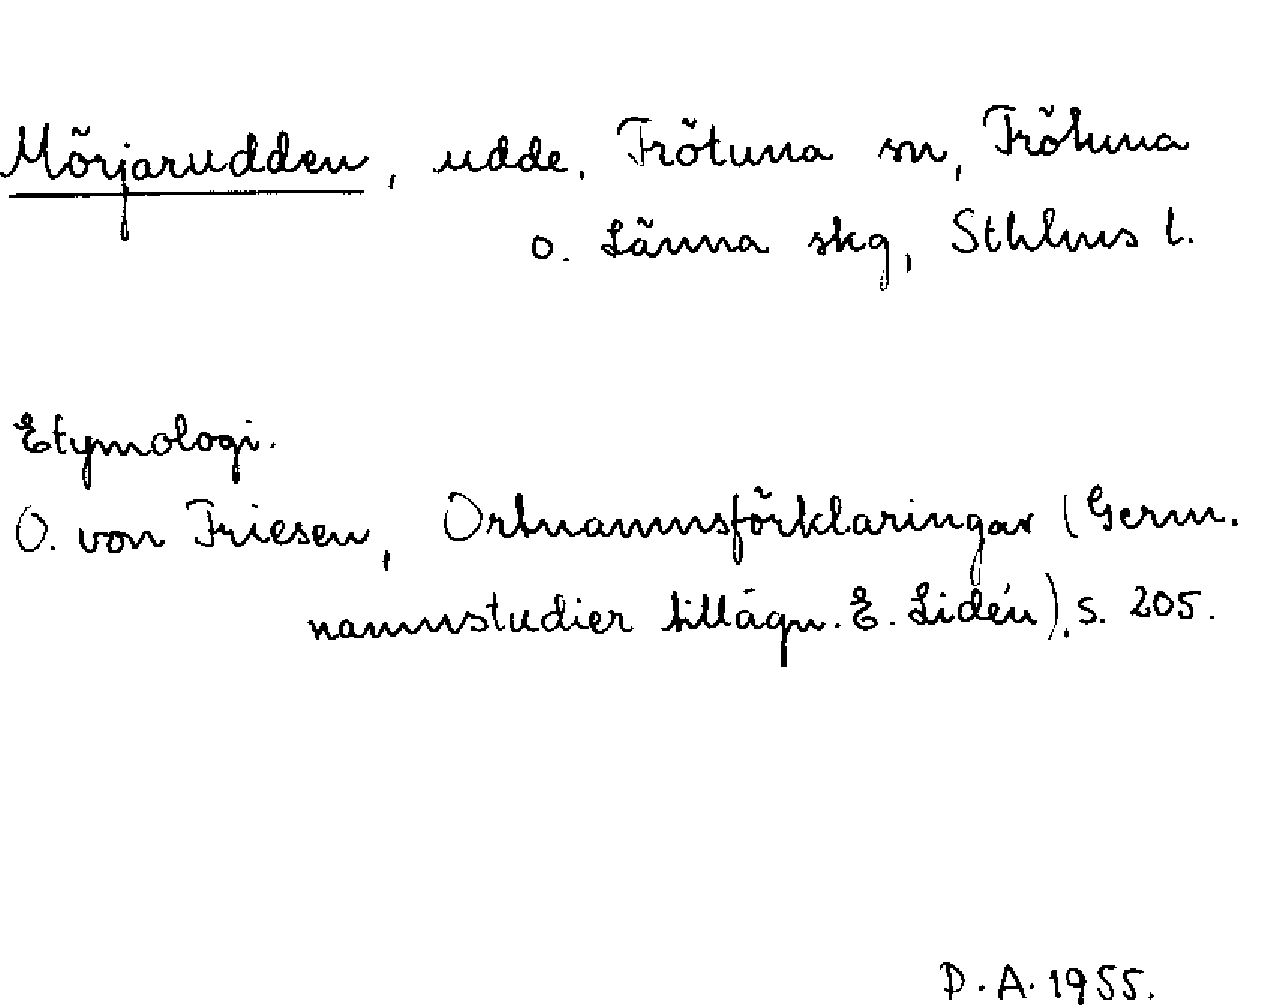 Mörjarudden, udde, Frötuna sn, Frötuna
o. Länna skg, Sthlms l.
Etymologi.
O. von Friesen, Ortnamnsförklaringar (Germ.
namnstudier tillägn. E. Lidén). s. 205.
P.A. 1955.